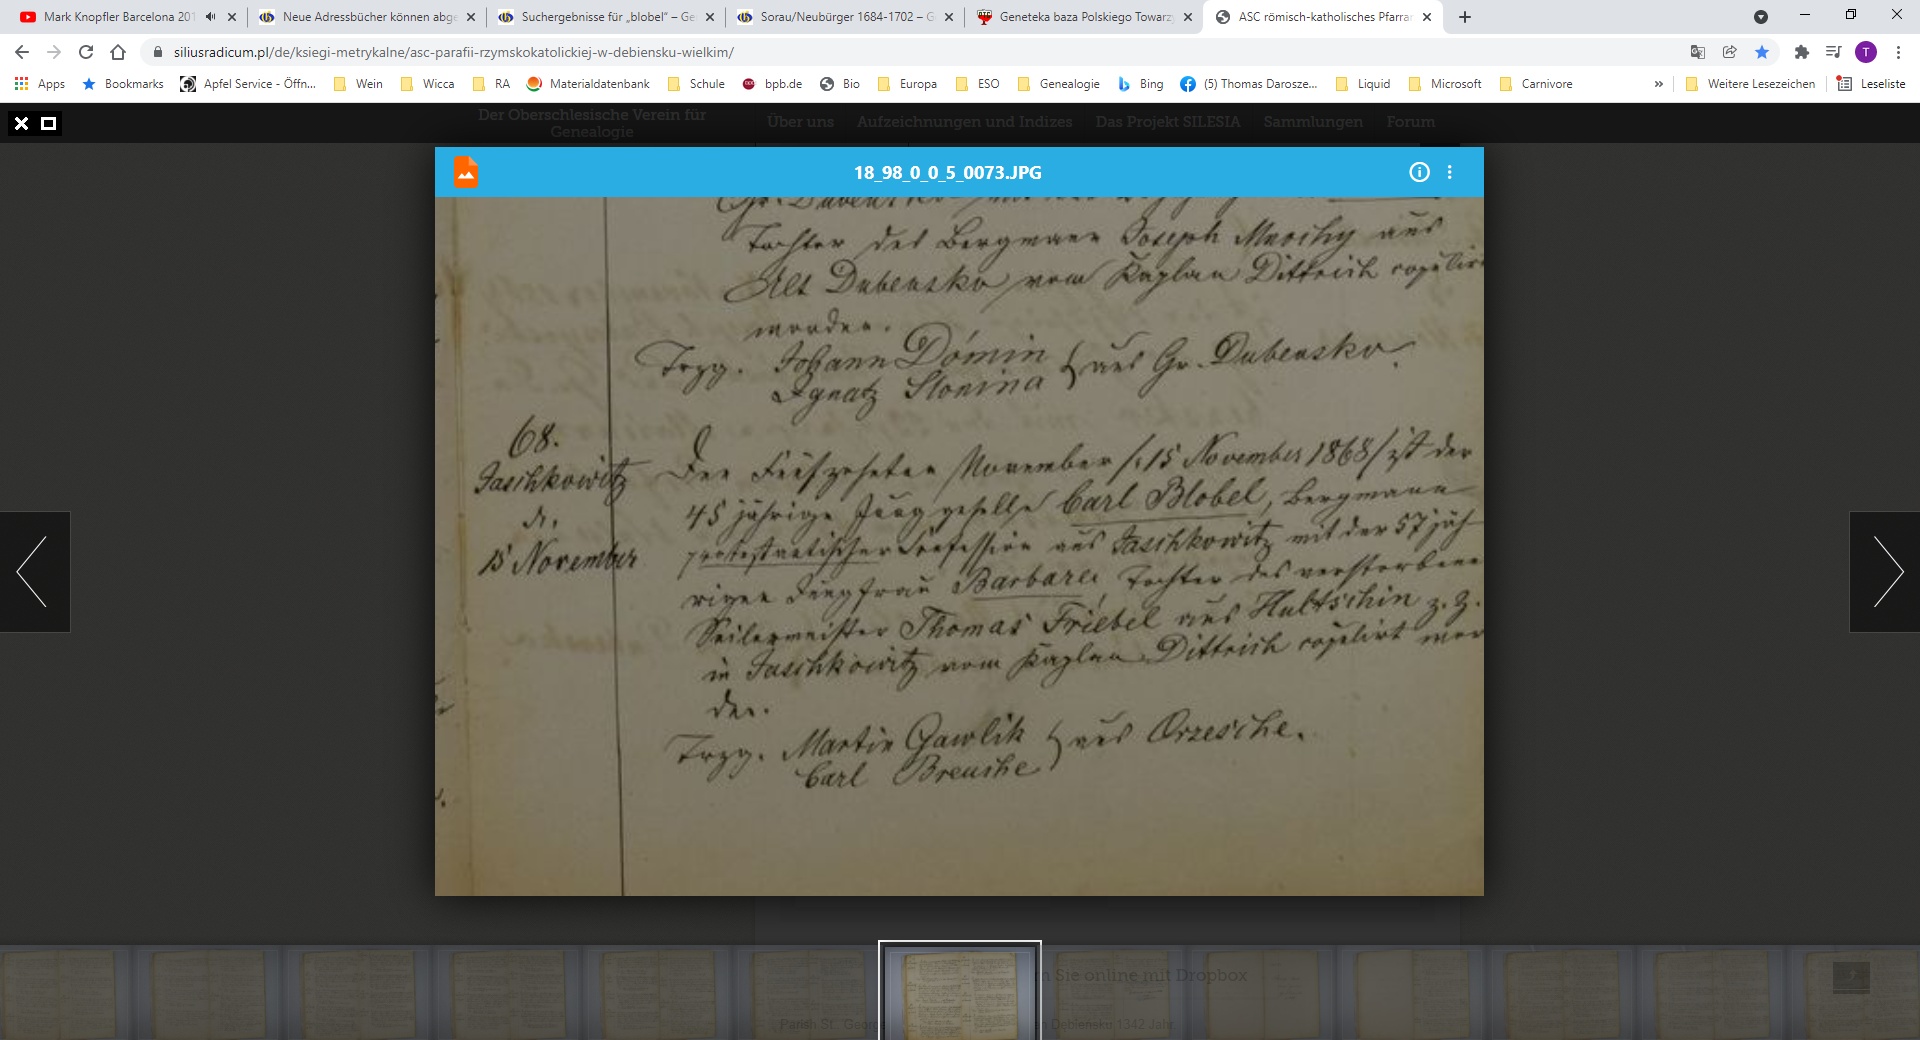 Mark Knopfler Barcelona 201
Neue Adressbücher können abge
Suchergebnisse für „blobel“ – Ge
Sorau/Neubürger 1684-1702 – G
Geneteka baza Polskiego Towarz
ASC römisch-katholisches Pfarra
siliusradicum.pl/de/ksiegi-metrykalne/asc-parafii-rzymskokatolickiej-w-debiensku-wielkim/
T
Apps
Bookmarks
Apfel Service - Öffn...
Wein
Wicca
RA
Materialdatenbank
Schule
bpb.de
Bio
Europa
ESO
Genealogie
Bing
(5) Thomas Darosze...
Liquid
Microsoft
Carnivore
»
Weitere Lesezeichen
Leseliste
Der Oberschlesische Verein für
Genealogie
Über uns
Aufzeichnungen und Indizes
Das Projekt SILESIA
Sammlungen
Forum
18_98_0_0_5_0073.JPG
Tochter des Bergmann Joseph aus
Alt Dubensko vom Kaplan Dittrich copulirt
worden.
Tzzg. Johann Domin
Ignatz Slonina } aus Gr. Dubensko.
68.
Jaschkowitz
d.
15 November
Den Fünfzehnten November /:15 November 1868/ ist der
45 jährige Junggeselle Carl Blobel, Bergmann
protestantischer Confession aus Jaschkowitz mit der 57 jäh
rigen Jungfrau Barbara, Tochter des verstorbene
Seilermeister Thomas Friebel aus Hultschin z. Z.
in Jaschkowitz vom Kaplan Dittrich copulirt wor
den.
Tzzg. Martin Gawlik
Carl Breusche } aus Orzesche.
n Sie online mit Dropbox
Parish St. Georg
Debiensko 1342 Jahr